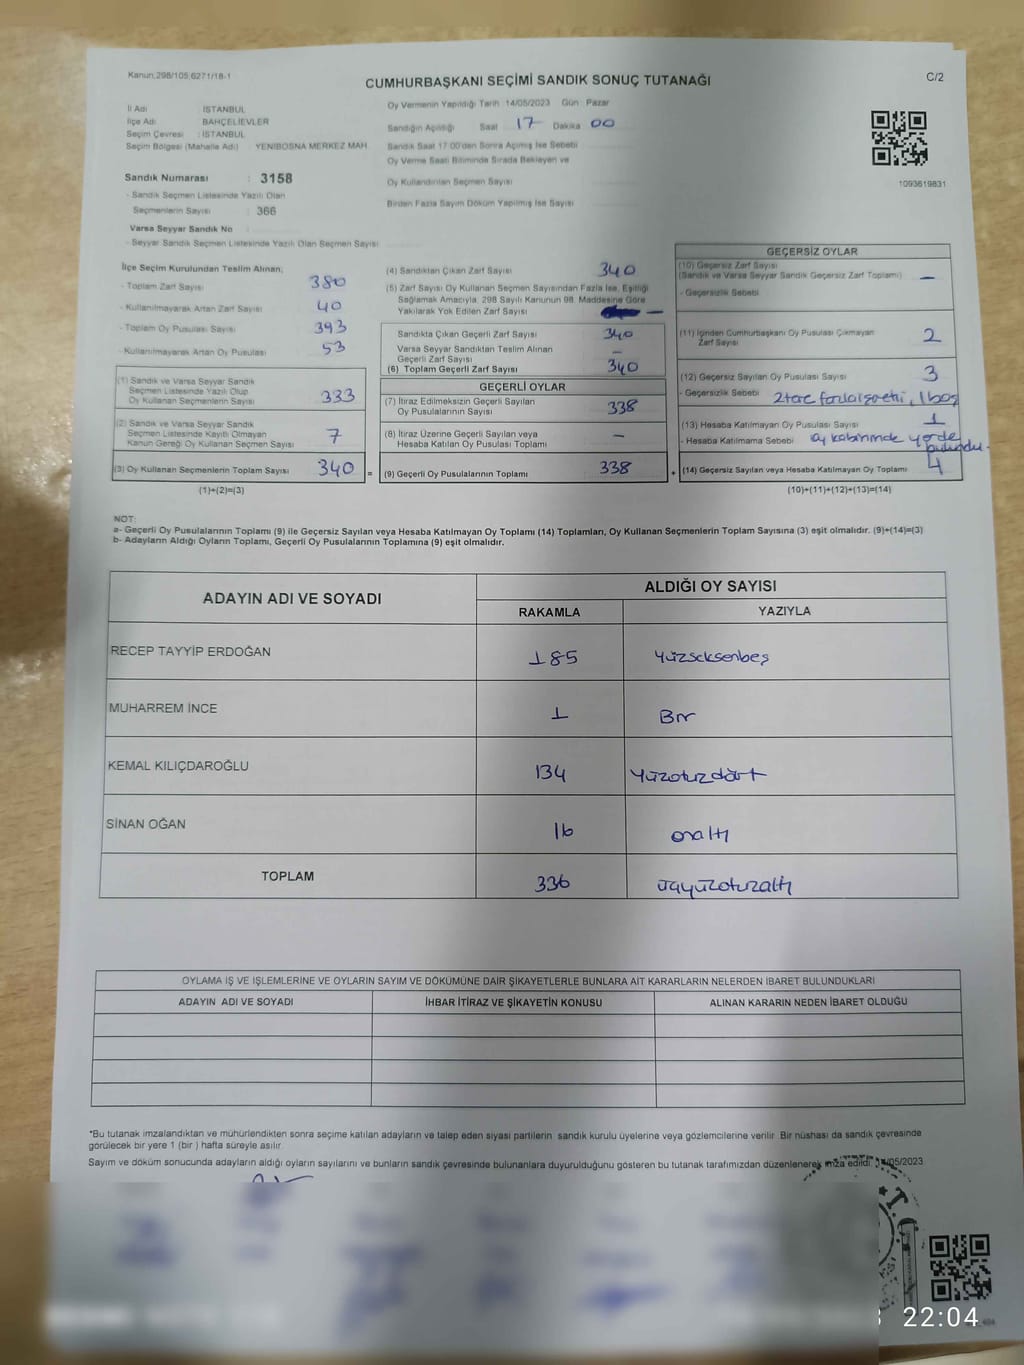 Kanun,298/105,6271/18-1
CUMHURBAŞKANI SEÇİMİ SANDIK SONUÇ TUTANAĞI
C/2
İl Adı : İSTANBUL
İlçe Adı : BAHÇELİEVLER
Seçim Çevresi : İSTANBUL
Seçim Bölgesi (Mahalle Adı) YENİBOSNA MERKEZ MAH
Sandık Numarası : 3158
- Sandık Seçmen Listesinde Yazılı Olan
Seçmenlerin Sayısı : 366
Varsa Seyyar Sandık No :
- Seyyar Sandık Seçmen Listesinde Yazılı Olan Seçmen Sayısı
Oy Vermenin Yapıldığı Tarih : 14/05/2023 Gün : Pazar
Sandığın Açıldığı Saat 17 Dakika 00
Sandık Saat 17:00'den Sonra Açımış İse Sebebi
Oy Verme Saati Bitiminde Sırada Bekleyen ve
Oy Kullandırılan Seçmen Sayısı
Birden Fazla Sayım Döküm Yapılmış İse Sayısı
1093619831
İlçe Seçim Kurulundan Teslim Alınan;
- Toplam Zarf Sayısı 380
- Kullanılmayarak Artan Zarf Sayısı 40
- Toplam Oy Pusulası Sayısı 393
- Kullanılmayarak Artan Oy Pusulası 53
(1) Sandık ve Varsa Seyyar Sandık
Seçmen Listesinde Yazılı Olup
Oy Kullanan Seçmenlerin Sayısı 333
(2) Sandık ve Varsa Seyyar Sandık
Seçmen Listesinde Kayıtlı Olmayan
Kanun Gereği Oy Kullanan Seçmen Sayısı 7
(3) Oy Kullanan Seçmenlerin Toplam Sayısı 340
=
(1)+(2)=(3)
(4) Sandıktan Çıkan Zarf Sayısı 340
(5) Zarf Sayısı Oy Kullanan Seçmen Sayısından Fazla İse, Eşitliği
Sağlamak Amacıyla, 298 Sayılı Kanunun 98. Maddesine Göre
Yakılarak Yok Edilen Zarf Sayısı —
Sandıkta Çıkan Geçerli Zarf Sayısı 340
Varsa Seyyar Sandıktan Teslim Alınan
Geçerli Zarf Sayısı —
(6) Toplam Geçerli Zarf Sayısı 340
GEÇERLİ OYLAR
(7) İtiraz Edilmeksizin Geçerli Sayılan
Oy Pusulalarının Sayısı 338
(8) İtiraz Üzerine Geçerli Sayılan veya
Hesaba Katılan Oy Pusulası Toplamı —
(9) Geçerli Oy Pusulalarının Toplamı 338
+
GEÇERSİZ OYLAR
(10) Geçersiz Zarf Sayısı
(Sandık ve Varsa Seyyar Sandık Geçersiz Zarf Toplamı) —
- Geçersizlik Sebebi
(11) İçinden Cumhurbaşkanı Oy Pusulası Çıkmayan
Zarf Sayısı 2
(12) Geçersiz Sayılan Oy Pusulası Sayısı 3
- Geçersizlik Sebebi 2 tere fazla işareti, 1 boş
(13) Hesaba Katılmayan Oy Pusulası Sayısı 1
- Hesaba Katılmama Sebebi oy kabininde yerde
bulundu.
(14) Geçersiz Sayılan veya Hesaba Katılmayan Oy Toplamı 4
(10)+(11)+(12)+(13)=(14)
NOT:
a- Geçerli Oy Pusulalarının Toplamı (9) ile Geçersiz Sayılan veya Hesaba Katılmayan Oy Toplamı (14) Toplamları, Oy Kullanan Seçmenlerin Toplam Sayısına (3) eşit olmalıdır. (9)+(14)=(3)
b- Adayların Aldığı Oyların Toplamı, Geçerli Oy Pusulalarının Toplamına (9) eşit olmalıdır.
ADAYIN ADI VE SOYADI
ALDIĞI OY SAYISI
RAKAMLA YAZIYLA
RECEP TAYYİP ERDOĞAN 185 yüzseksenbeş
MUHARREM İNCE 1 Bir
KEMAL KILIÇDAROĞLU 134 yüzotuzdört
SİNAN OĞAN 16 onaltı
TOPLAM 336 üçyüzotuzaltı
OYLAMA İŞ VE İŞLEMLERİNE VE OYLARIN SAYIM VE DÖKÜMÜNE DAİR ŞİKAYETLERLE BUNLARA AİT KARARLARIN NELERDEN İBARET BULUNDUKLARI
ADAYIN ADI VE SOYADI İHBAR İTİRAZ VE ŞİKAYETİN KONUSU ALINAN KARARIN NEDEN İBARET OLDUĞU
*Bu tutanak imzalandıktan ve mühürlendikten sonra seçime katılan adayların ve talep eden siyasi partilerin sandık kurulu üyelerine veya gözlemcilerine verilir. Bir nüshası da sandık çevresinde
görülecek bir yere 1 (bir ) hafta süreyle asılır.
Sayım ve döküm sonucunda adayların aldığı oyların sayılarını ve bunların sandık çevresinde bulunanlara duyurulduğunu gösteren bu tutanak tarafımızdan düzenlenerek imza edildi. 14/05/2023
22:04